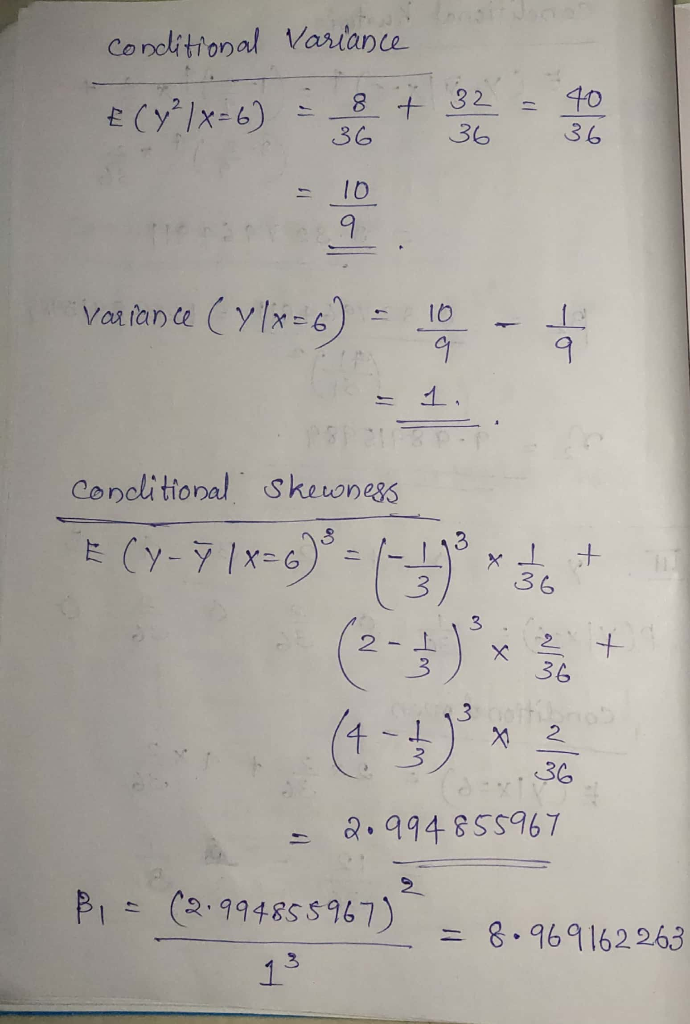 Conditional Variance
E(Y²|X=6) = 8/36 + 32/36 = 40/36
= 10/9.
Variance (Y|X=6) = 10/9 - 1/9
= 1.
Conditional Skewness
E(Y-Ȳ|X=6)³ = (-1/3)³ × 1/36 +
(2-1/3)³ × 2/36 +
(4-1/3)³ × 2/36
= 2.994855967
β₁ = (2.994855967)²/1³ = 8.969162263